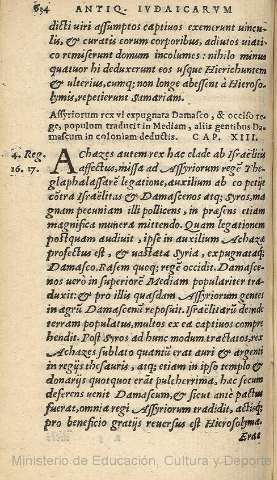 634 ANTIQ. IVDAICARVM
dicti viri assumptos captiuos exemerunt vincu-
lis, & curatis eorum corporibus, adiutos viati-
co remiserunt domum incolumes: nihilo minus
quatuor hi deduxerunt eos usque Hierichuntem
& ulterius, cumq; non longe abessent à Hieroso-
lymis, repetierunt Samariam.
Assyriorum rex vi expugnata Damasco, & occiso re-
ge, populum traducit in Mediam, aliis gentibus Da-
mascum in coloniam deductis. CAP. XIII.
4. Reg.
16. 17.
ACHAZES autem rex hac clade ab Israëlitis
affectus, missa ad Assyriorum regẽ The-
glaphalassarẽ legatione, auxilium ab eo petijt
cõtra Israëlitas & Damascenos atq; Syros, ma-
gnam pecuniam illi pollicens, in præsens etiam
magnifica munera mittendo. Quam legationem
postquam audiuit, ipse in auxilium Achazæ
profectus est, & uastata Syria, expugnataq;
Damasco, Rasem quoq; regẽ occidit. Damasce-
nos uero in superiorẽ Mediam populariter tra-
duxit: & pro illis quasdam Assyriorum gentes
in agrũ Damascenũ reposuit. Israëlitarũ deinde
terram populatus, multos ex ea captiuos compre
hendit. Post Syros ad hunc modum tractatos, rex
Achazes sublato quantũ erat auri & argenti
in regijs thesauris, atq; etiam in ipso templo &
donarijs quotquot erãt pulcherrima, hæc secum
deferens uenit Damascum, & sicut ante pactus
fuerat, omnia regi Assyriorum tradidit, actisq;
pro beneficio gratijs reuersus est Hierosolyma.
Erat
Ministerio de Educación, Cultura y Deporte